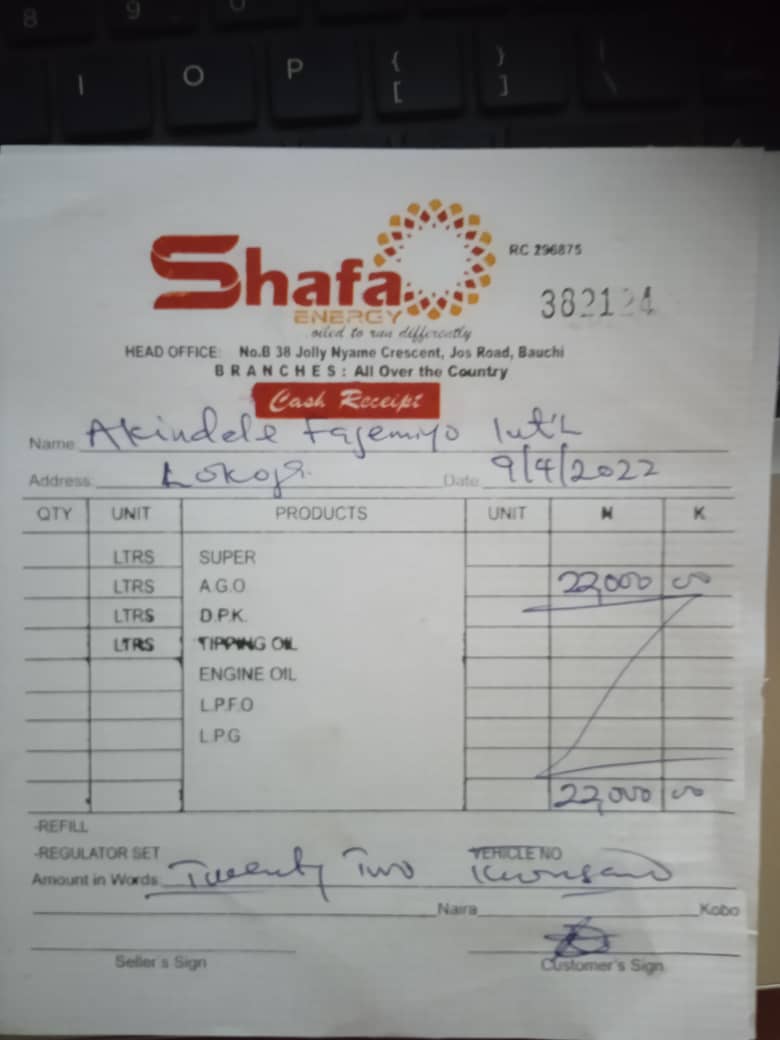 8 9 0
I O P { [ } ] | \
Shafa
RC 296875
ENERGY
382124
oiled to run differently
HEAD OFFICE: No.B 38 Jolly Nyame Crescent, Jos Road, Bauchi
BRANCHES: All Over the Country
Cash Receipt
Name Akindele Fajemiyo Int'L
Address Lokoja Date 9/4/2022
QTY UNIT PRODUCTS UNIT N K
LTRS SUPER
LTRS A.G.O 22,000 00
LTRS D.P.K.
LTRS TIPPING OIL
ENGINE OIL
L.P.F.O
L.P.G
22,000 00
-REFILL
-REGULATOR SET VEHICLE NO
Amount in Words Twenty Two Thousand
Naira Kobo
Seller's Sign Customer's Sign